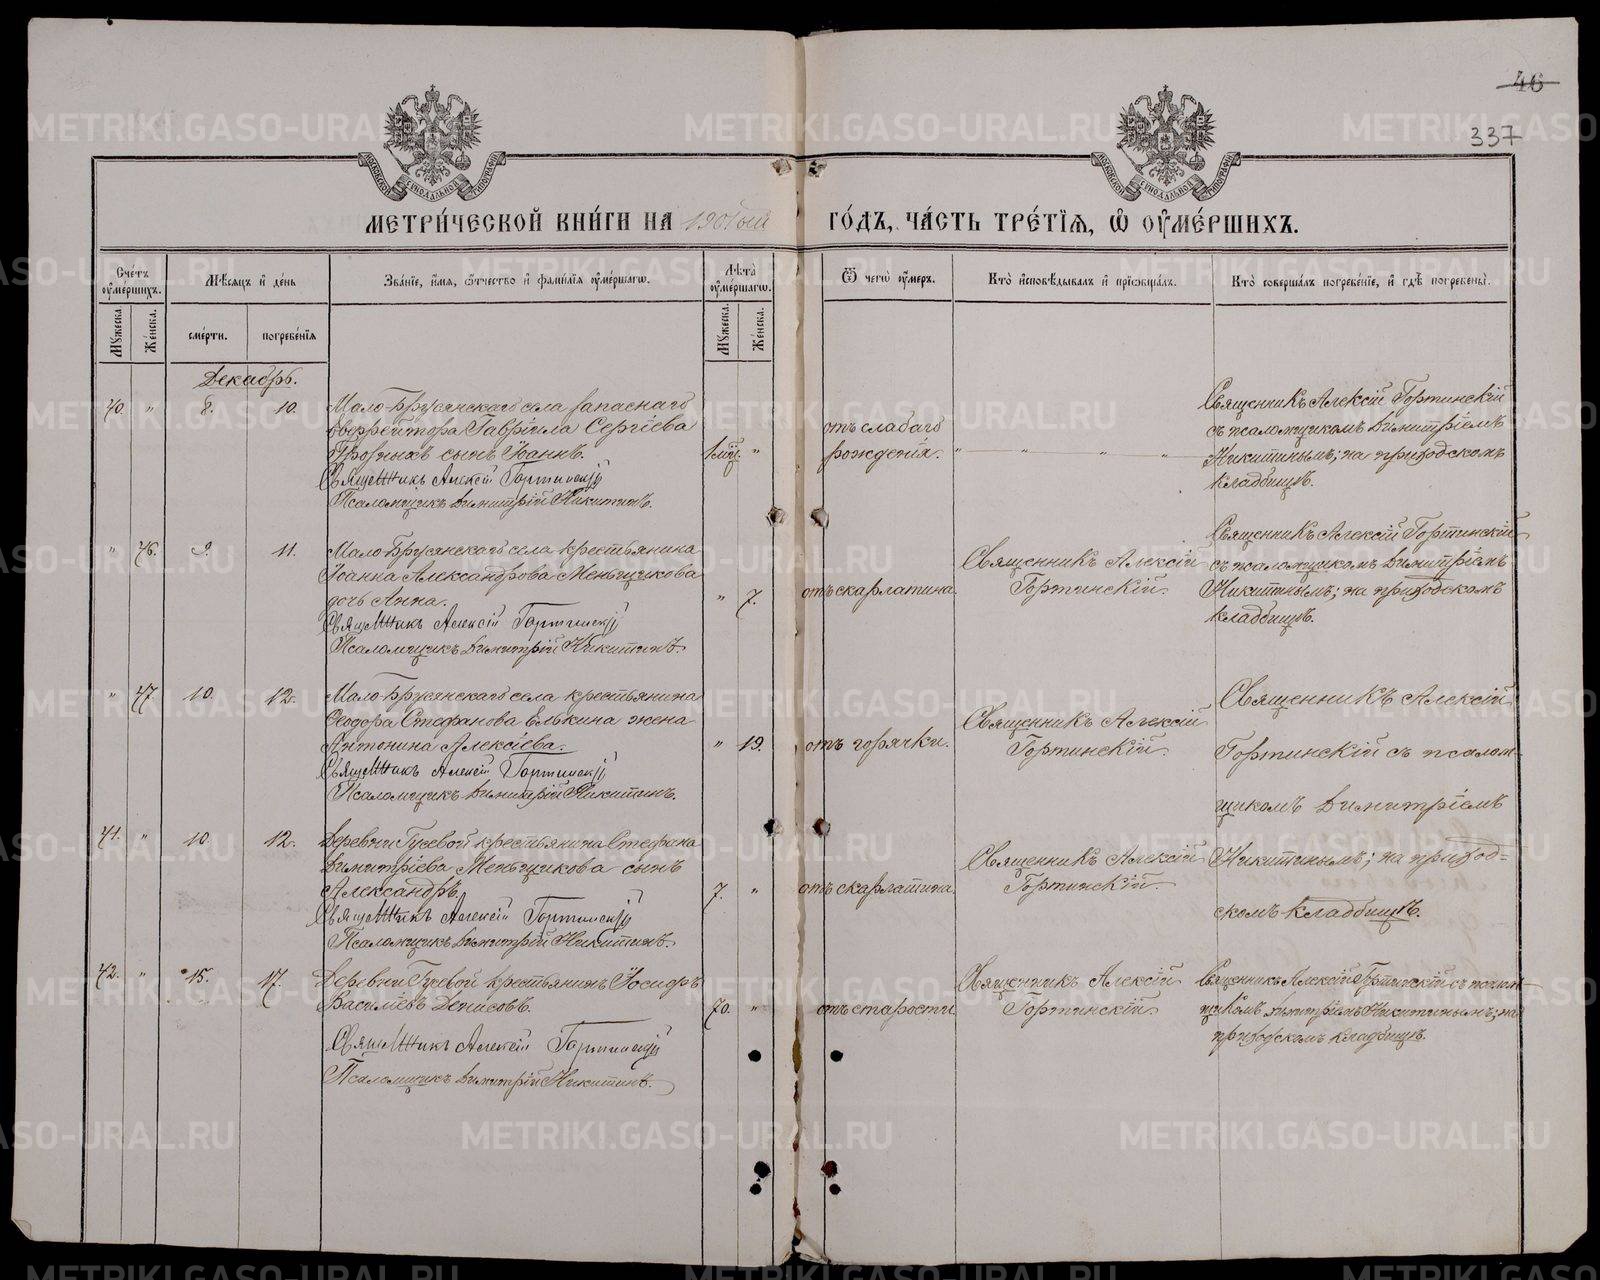 46
337
МОСКОВСКОЙ СѴНОДАЛЬНОЙ ТИПОГРАФІИ
МОСКОВСКОЙ СѴНОДАЛЬНОЙ ТИПОГРАФІИ
МЕТРИ́ЧЕСКОЙ КНИ́ГИ НА 1901ый ГО́ДЪ, ЧА́СТЬ ТРЕ́ТІѦ, Ѡ ОУ҆МЕ́РШИХЪ.
Сче́тъ оу҆ме́ршихъ.
Мѣ́сяцъ и҆ де́нь
Зва́ніе, и҆́мя, ѻ҆́тчество и҆ фамі́лія оу҆ме́ршагѡ.
Лѣта̀ оу҆ме́ршагѡ.
Ѿ чегѡ̀ оу҆́меръ.
Кто̀ и҆сповѣ́дывалъ и҆ прїѡбща́лъ.
Кто̀ соверша́лъ погребе́нїе, и҆ гдѣ̀ погребены̀.
Мꙋжеска.
Же́нска.
сме́рти.
погребе́нїя
Мꙋжеска.
Же́нска.
Декабрь.
40. „ 8. 10. Мало-Брусянскаго села запаснаго
оберфейтора Гавріила Сергіева
Гровныхъ сынъ Іоаннъ. 1 мѣс. „
Священникъ Алексій Гортинскій
Псаломщикъ Димитрій Никитинъ.
отъ слабаго
рожденія. „ „ „ „
Священникъ Алексій Гортинскій
съ псаломщикомъ Димитріемъ
Никитинымъ; на приходскомъ
кладбищѣ.
„ 46. 9. 11. Мало-Брусянскаго села крестьянина
Іоанна Александрова Меньщикова
дочь Анна. „ 7.
Священникъ Алексій Гортинскій
Псаломщикъ Димитрій Никитинъ.
отъ скарлатина.
Священникъ Алексій
Гортинскій.
Священникъ Алексій Гортинскій
съ псаломщикомъ Димитріемъ
Никитинымъ; на приходскомъ
кладбищѣ.
„ 47. 10. 12. Мало-Брусянскаго села крестьянина
Ѳеодора Стефанова Елькина жена
Антонина Алексіева. „ 19.
Священникъ Алексій Гортинскій
Псаломщикъ Димитрій Никитинъ.
отъ горячки.
Священникъ Алексій
Гортинскій.
Священникъ Алексій
Гортинскій съ псалом-
щикомъ Димитріемъ
Никитинымъ; на приход-
скомъ кладбищѣ.
41. „ 10. 12. Деревни Гусевой крестьянина Стефана
Димитріева Меньщикова сынъ
Александръ. 7. „
Священникъ Алексій Гортинскій
Псаломщикъ Димитрій Никитинъ.
отъ скарлатина.
Священникъ Алексій
Гортинскій.
42. „ 15. 17. Деревни Гусевой крестьянинъ Іосифъ
Василіевъ Денисовъ. 70. „
Священникъ Алексій Гортинскій
Псаломщикъ Димитрій Никитинъ.
отъ старости.
Священникъ Алексій
Гортинскій.
Священникъ Алексій Гортинскій съ псалом-
щикомъ Димитріемъ Никитинымъ; на
приходскомъ кладбищѣ.
METRIKI.GASO-URAL.RU